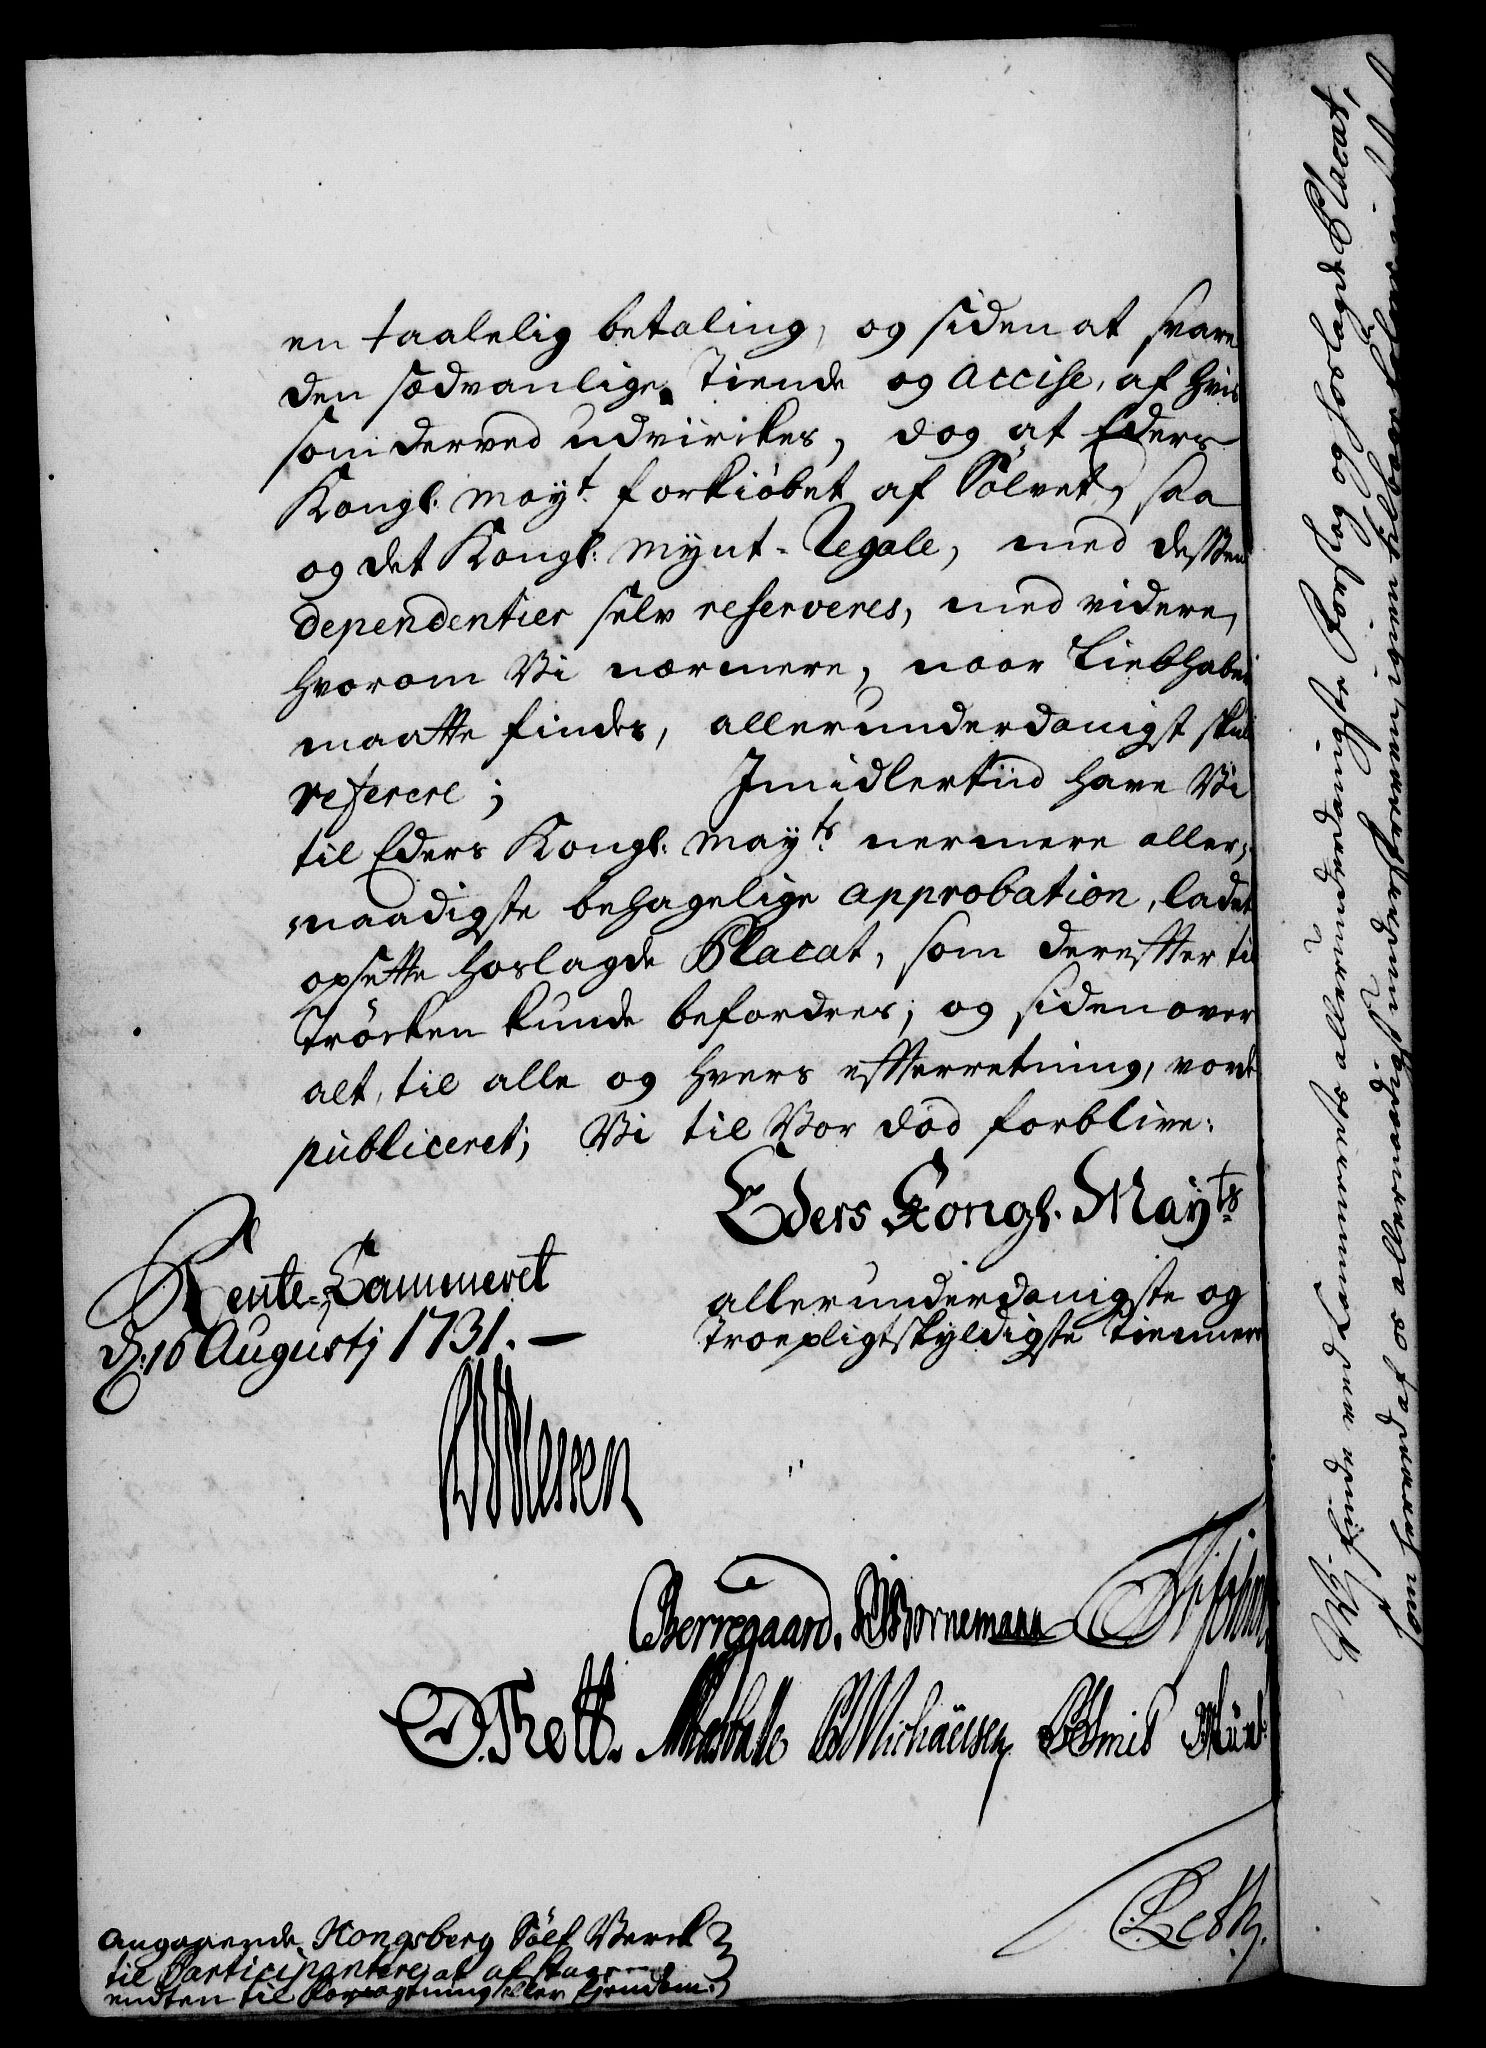 en taalelig betaling, og siden at svare
den sædvanlige Tiende og Accise, af hvis
som derved udvirkes, dog at Eders
Kongl: Mayt forkiöbet af Sölvet, saa
og det Kongl: Mynt-Regale, med dessen
dependentier selv reserveres, med videre,
hvorom Vi nærmere, naar Liebhaber
maatte findes, allerunderdanigst skulle
referere; Imidlertiid have Vi
til Eders Kongl: Mayts nermere aller-
naadigste behagelige approbation, ladet
opsette hoslagde Placat, som derefter til
Tröcken kunde befordres; og siden over
alt, til alle og hvers efterretning, vorde
publiceret; Vi til Vor död forblive:
Eders Kongl. Mayts
allerunderdanigste og
Troepligtskyldigste Tiennere
Rente-Cammeret
d: 16 Augustj 1731.
CBerregaard. Bornemann
O. Thott. Michaelsen
angaaende Kongsberg Sölf Verck
til Participantere at afstaae
endten til Forpagtning eller Ejendom.
Vi finde ved Cammerets allerunderdanigste Forslag og hoslagde Placat,
som herved af os allernaadigst underskreven, igien tilbage